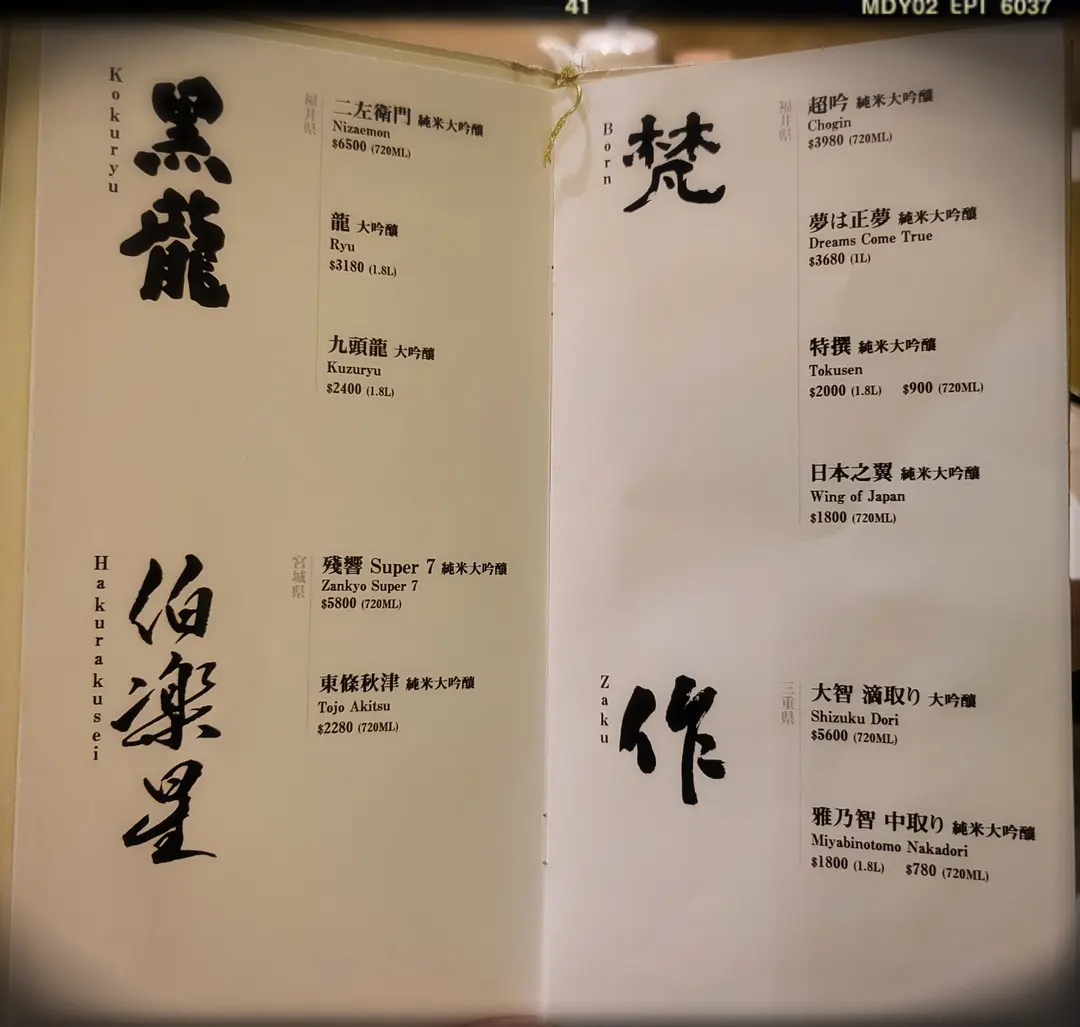 41
MDY02 EPT 6037
Kokuryu
黒龍
福井県
二左衛門 純米大吟釀
Nizaemon
$6500 (720ML)
龍 大吟釀
Ryu
$3180 (1.8L)
九頭龍 大吟釀
Kuzuryu
$2400 (1.8L)
Hakurakusei
伯楽星
宮城県
殘響 Super 7 純米大吟釀
Zankyo Super 7
$5800 (720ML)
東條秋津 純米大吟釀
Tojo Akitsu
$2280 (720ML)
Born
梵
福井県
超吟 純米大吟釀
Chogin
$3980 (720ML)
夢は正夢 純米大吟釀
Dreams Come True
$3680 (1L)
特撰 純米大吟釀
Tokusen
$2000 (1.8L) $900 (720ML)
日本之翼 純米大吟釀
Wing of Japan
$1800 (720ML)
Zaku
作
三重県
大智 滴取り 大吟釀
Shizuku Dori
$5600 (720ML)
雅乃智 中取り 純米大吟釀
Miyabinotomo Nakadori
$1800 (1.8L) $780 (720ML)